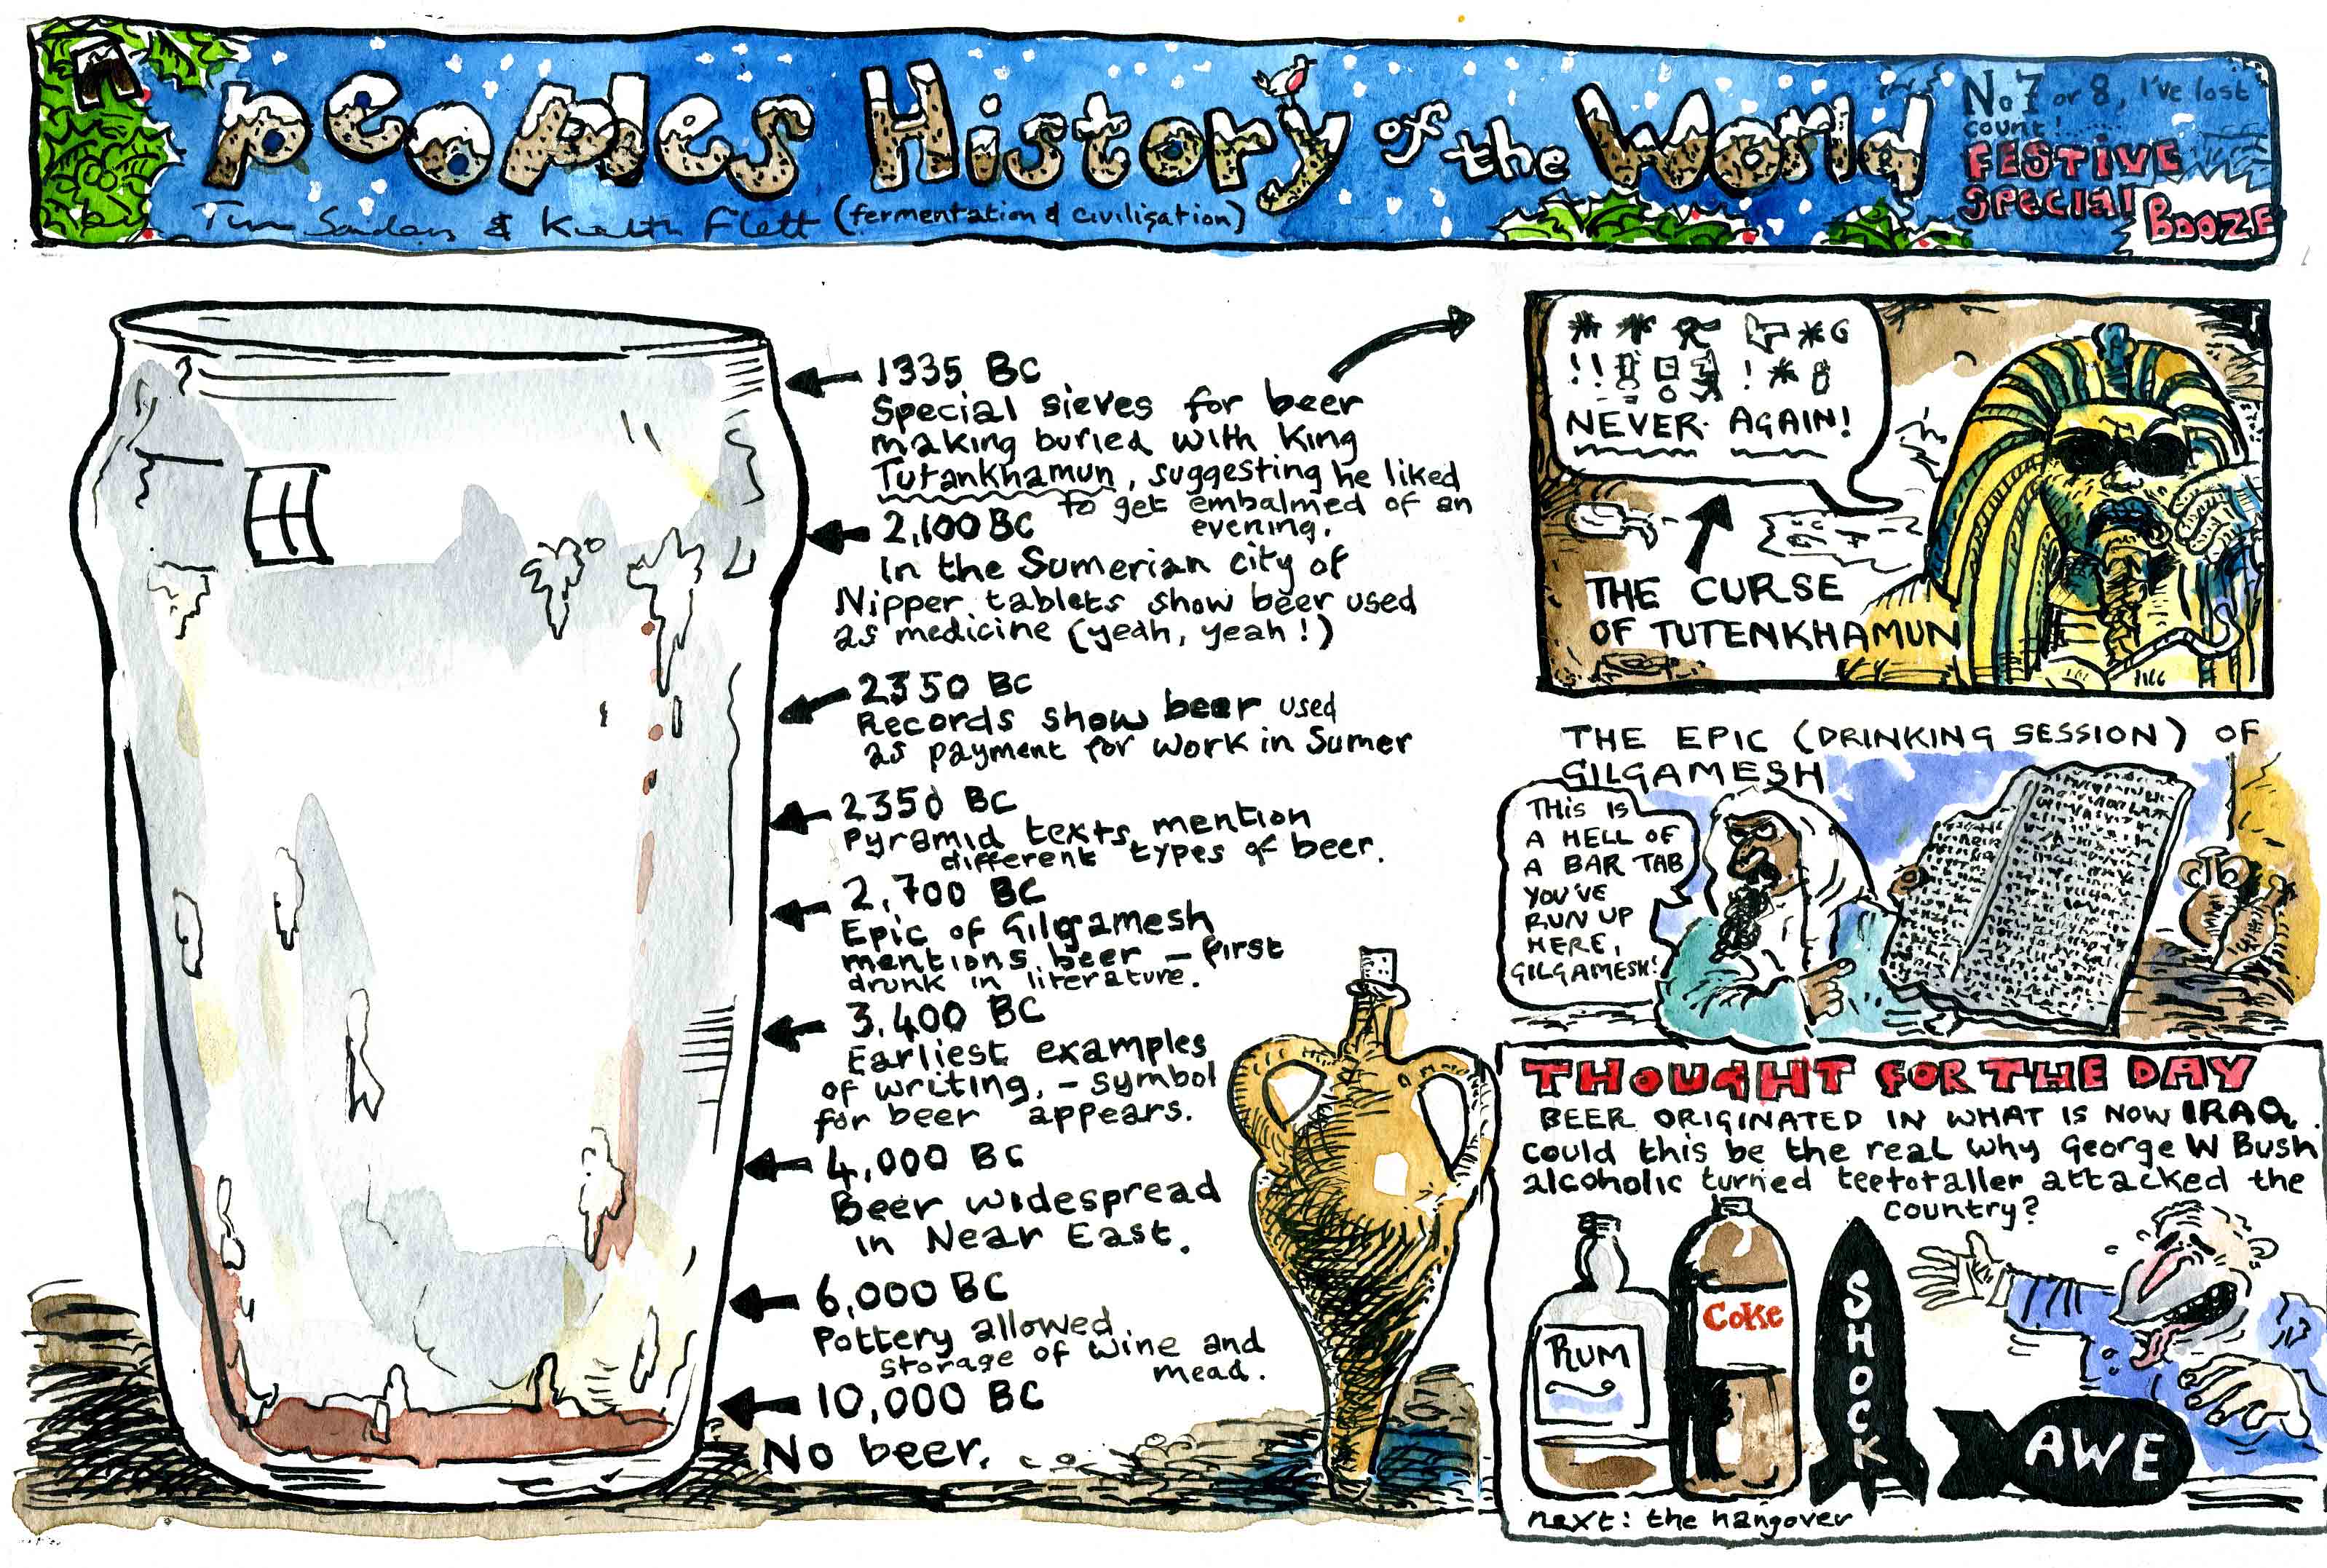 Peoples History of the World
No 7 or 8, I've lost
count!
FESTIVE
SPECIAL
BOOZE
Tim Sanders & Keith Flett (fermentation & civilisation)
1335 BC
Special sieves for beer
making buried with King
Tutankhamun, suggesting he liked
to get embalmed of an
evening.
2,100 BC
In the Sumerian city of
Nipper tablets show beer used
as medicine (yeah, yeah!)
2350 BC
Records show beer used
as payment for work in Sumer
2350 BC
Pyramid texts mention
different types of beer.
2,700 BC
Epic of Gilgamesh
mentions beer – first
drunk in literature.
3,400 BC
Earliest examples
of writing, – symbol
for beer appears.
4,000 BC
Beer widespread
in Near East.
6,000 BC
Pottery allowed
storage of wine and
mead.
10,000 BC
No beer.
NEVER AGAIN!
THE CURSE
OF TUTENKHAMUN
THE EPIC (DRINKING SESSION) OF
GILGAMESH
THIS IS
A HELL OF
A BAR TAB
YOU'VE
RUN UP
HERE,
GILGAMESH!
THOUGHT FOR THE DAY
BEER ORIGINATED IN WHAT IS NOW IRAQ.
Could this be the real why George W Bush
alcoholic turned teetotaller attacked the
country?
RUM
Coke
SHOCK
AWE
next: the hangover